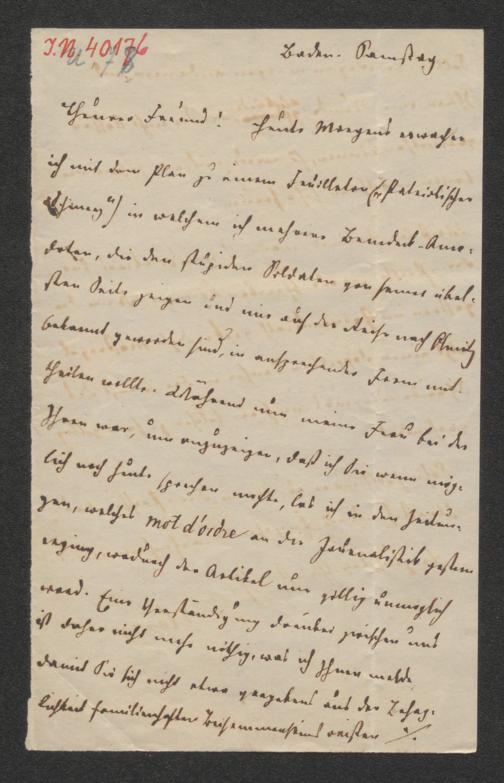 I.N. 40176
Baden. Samstag
Theurer Freund! Heute Morgens erwachte
ich mit dem Plan zu einem Feuilleton („Patriotischer
in welchem ich mehrere Benedek-Anec-
doten, die den stupiden Soldaten von seiner übel-
sten Seite zeigen und mir auf der Reise nach Olmütz
bekannt geworden sind, in ansprechender Form mit-
theilen wollte. Während nun meine Frau bei der
Ihren war, um anzuzeigen, daß ich Sie wenn mög-
lich noch heute sprechen möchte, las ich in den Zeitun-
gen, welches mot d'ordre an die Journalistik gestern
erging, wodurch der Artikel nun völlig unmöglich
ward. Eine Verständigung darüber zwischen uns
ist daher nicht mehr nöthig, was ich Ihnen melde,
damit Sie sich nicht etwa vergebens aus der Behag-
lichkeit familienhaften Beisammenseins reißen ./.